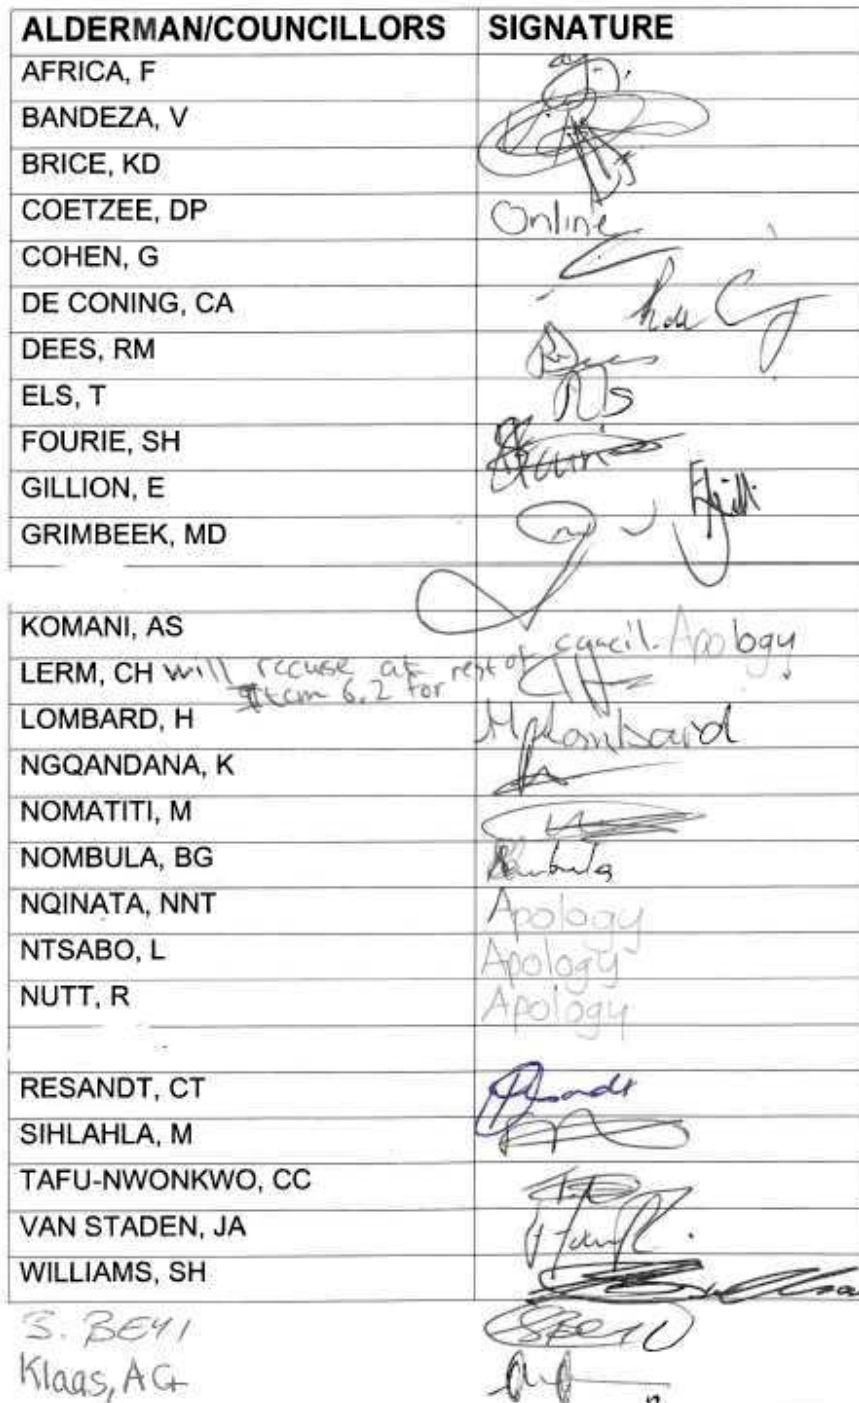 ALDERMAN/COUNCILLORS SIGNATURE
AFRICA, F
BANDEZA, V
BRICE, KD
COETZEE, DP Online
COHEN, G
DE CONING, CA
DEES, RM
ELS, T
FOURIE, SH
GILLION, E
GRIMBEEK, MD
KOMANI, AS Apology
LERM, CH will recuse at rest of council.
Item 6.2 for
LOMBARD, H HLombard
NGQANDANA, K
NOMATITI, M
NOMBULA, BG
NQINATA, NNT Apology
NTSABO, L Apology
NUTT, R Apology
RESANDT, CT
SIHLAHLA, M
TAFU-NWONKWO, CC
VAN STADEN, JA
WILLIAMS, SH
S. BEYI
Klaas, AG